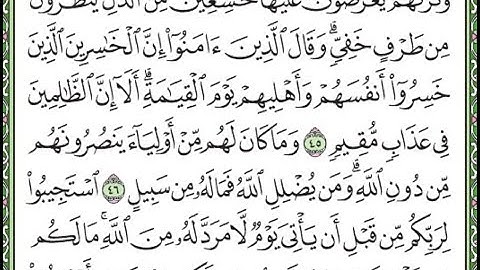 وَتَرَىٰهُمْ يُعْرَضُونَ عَلَيْهَا خَٰشِعِينَ مِنَ ٱلذُّلِّ يَنظُرُونَ
مِن طَرْفٍ خَفِىٍّ ۗ وَقَالَ ٱلَّذِينَ ءَامَنُوٓا۟ إِنَّ ٱلْخَٰسِرِينَ ٱلَّذِينَ
خَسِرُوٓا۟ أَنفُسَهُمْ وَأَهْلِيهِمْ يَوْمَ ٱلْقِيَٰمَةِ ۗ أَلَآ إِنَّ ٱلظَّٰلِمِينَ
فِى عَذَابٍ مُّقِيمٍ ٤٥ وَمَا كَانَ لَهُم مِّنْ أَوْلِيَآءَ يَنصُرُونَهُم
مِّن دُونِ ٱللَّهِ ۗ وَمَن يُضْلِلِ ٱللَّهُ فَمَا لَهُۥ مِن سَبِيلٍ ٤٦ ٱسْتَجِيبُوا۟
لِرَبِّكُم مِّن قَبْلِ أَن يَأْتِىَ يَوْمٌ لَّا مَرَدَّ لَهُۥ مِنَ ٱللَّهِ ۚ مَا لَكُم